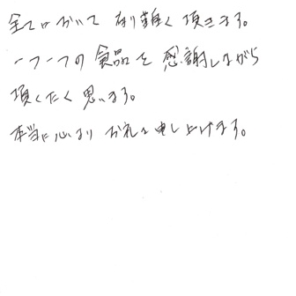 全てにおいて有り難く頂きます。
一つ一つの食品を感謝しながら
頂くたく思います。
本当に心よりお礼を申し上げます。